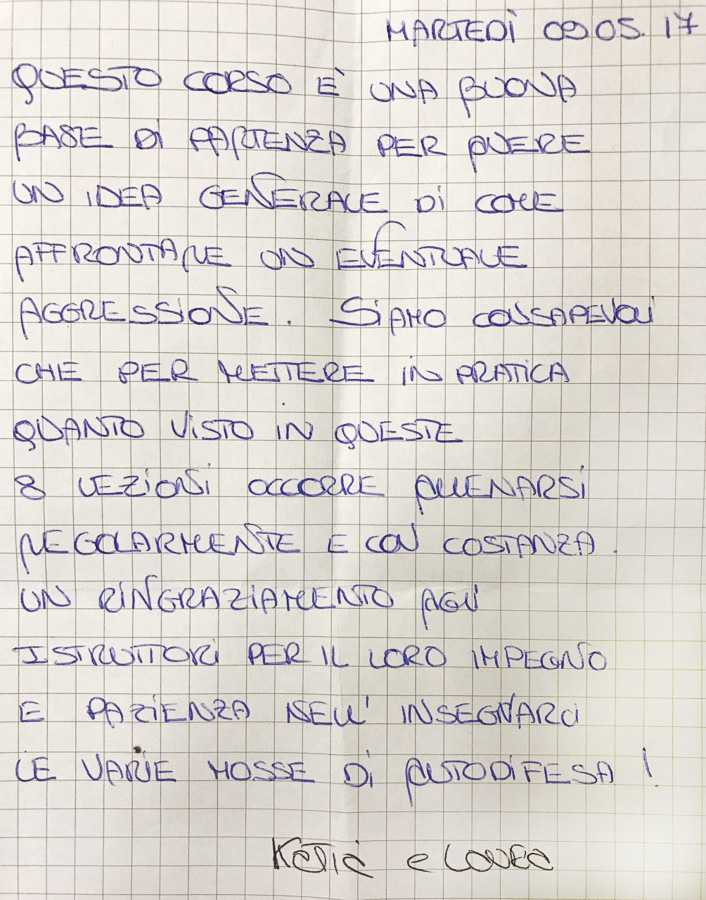 MARTEDÌ 09 05. 17
QUESTO CORSO È UNA BUONA
BASE Di PARTENZA PER AVERE
UN IDEA GENERALE Di COME
AFFRONTARE UN EVENTUALE
AGGRESSIONE. SiAMO CONSAPEVOLI
CHE PER METTERE IN PRATICA
QUANTO ViSTO iN QUESTE
8 LEZIONi OCCORRE ALLENARSi
REGOLARMENTE E CON COSTANZA.
UN RINGRAZIAMENTO AGLi
ISTRUTTORi PER IL LORO IMPEGNO
E PAZIENZA NELL' INSEGNARCi
LE VARIE MOSSE Di AUTODiFESA!
Katia e